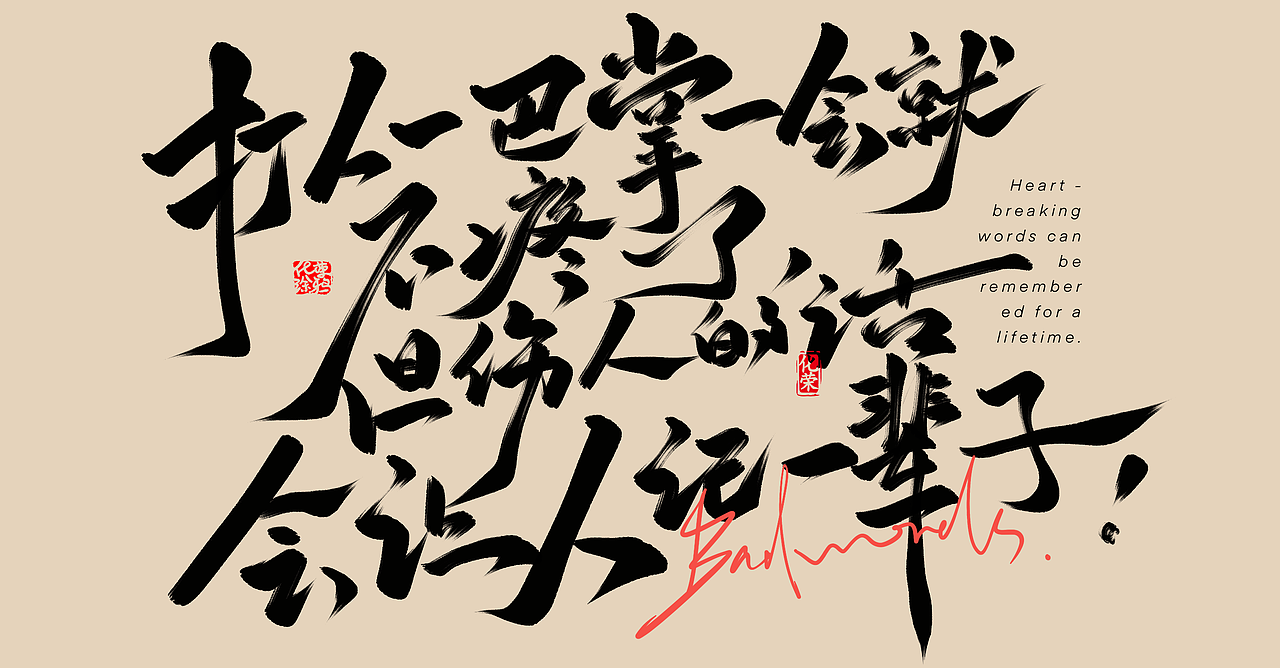 打人一巴掌一会就
不疼了
但伤人的话
会让人记一辈子!
Heart -
breaking
words can
be
remember
ed for a
lifetime.
化荣
Bad words.